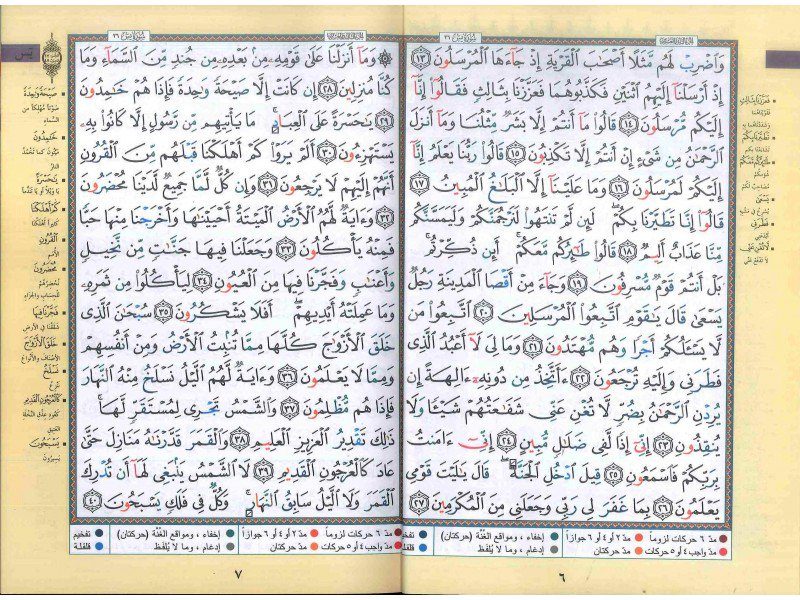 وَٱضْرِبْ لَهُم مَّثَلًا أَصْحَٰبَ ٱلْقَرْيَةِ إِذْ جَآءَهَا ٱلْمُرْسَلُونَ ١٣
إِذْ أَرْسَلْنَآ إِلَيْهِمُ ٱثْنَيْنِ فَكَذَّبُوهُمَا فَعَزَّزْنَا بِثَالِثٍ فَقَالُوٓا۟ إِنَّآ
إِلَيْكُم مُّرْسَلُونَ ١٤ قَالُوا۟ مَآ أَنتُمْ إِلَّا بَشَرٌ مِّثْلُنَا وَمَآ أَنزَلَ
ٱلرَّحْمَٰنُ مِن شَىْءٍ إِنْ أَنتُمْ إِلَّا تَكْذِبُونَ ١٥ قَالُوا۟ رَبُّنَا يَعْلَمُ إِنَّآ
إِلَيْكُمْ لَمُرْسَلُونَ ١٦ وَمَا عَلَيْنَآ إِلَّا ٱلْبَلَٰغُ ٱلْمُبِينُ ١٧
قَالُوٓا۟ إِنَّا تَطَيَّرْنَا بِكُمْ ۖ لَئِن لَّمْ تَنتَهُوا۟ لَنَرْجُمَنَّكُمْ وَلَيَمَسَّنَّكُم
مِّنَّا عَذَابٌ أَلِيمٌ ١٨ قَالُوا۟ طَٰٓئِرُكُم مَّعَكُمْ ۚ أَئِن ذُكِّرْتُم ۚ
بَلْ أَنتُمْ قَوْمٌ مُّسْرِفُونَ ١٩ وَجَآءَ مِنْ أَقْصَا ٱلْمَدِينَةِ رَجُلٌ
يَسْعَىٰ قَالَ يَٰقَوْمِ ٱتَّبِعُوا۟ ٱلْمُرْسَلِينَ ٢٠ ٱتَّبِعُوا۟ مَن
لَّا يَسْـَٔلُكُمْ أَجْرًا وَهُم مُّهْتَدُونَ ٢١ وَمَا لِىَ لَآ أَعْبُدُ ٱلَّذِى
فَطَرَنِى وَإِلَيْهِ تُرْجَعُونَ ٢٢ ءَأَتَّخِذُ مِن دُونِهِۦٓ ءَالِهَةً إِن
يُرِدْنِ ٱلرَّحْمَٰنُ بِضُرٍّ لَّا تُغْنِ عَنِّى شَفَٰعَتُهُمْ شَيْـًٔا وَلَا
يُنقِذُونِ ٢٣ إِنِّىٓ إِذًا لَّفِى ضَلَٰلٍ مُّبِينٍ ٢٤ إِنِّىٓ ءَامَنتُ
بِرَبِّكُمْ فَٱسْمَعُونِ ٢٥ قِيلَ ٱدْخُلِ ٱلْجَنَّةَ ۖ قَالَ يَٰلَيْتَ قَوْمِى
يَعْلَمُونَ ٢٦ بِمَا غَفَرَ لِى رَبِّى وَجَعَلَنِى مِنَ ٱلْمُكْرَمِينَ ٢٧
مدّ ٦ حركات لزوماً مدّ ٢ أو ٤ أو ٦ جوازاً إخفاء ، ومواقع الغُنَّة (حركتان)
مدّ واجب ٤ أو ٥ حركات مدّ حركتان إدغام ، وما لا يُلفَظ
٦
يس
وَمَآ أَنزَلْنَا عَلَىٰ قَوْمِهِۦ مِنۢ بَعْدِهِۦ مِن جُندٍ مِّنَ ٱلسَّمَآءِ وَمَا
كُنَّا مُنزِلِينَ ٢٨ إِن كَانَتْ إِلَّا صَيْحَةً وَٰحِدَةً فَإِذَا هُمْ خَٰمِدُونَ
٢٩ يَٰحَسْرَةً عَلَى ٱلْعِبَادِ ۚ مَا يَأْتِيهِم مِّن رَّسُولٍ إِلَّا كَانُوا۟ بِهِۦ
يَسْتَهْزِءُونَ ٣٠ أَلَمْ يَرَوْا۟ كَمْ أَهْلَكْنَا قَبْلَهُم مِّنَ ٱلْقُرُونِ
أَنَّهُمْ إِلَيْهِمْ لَا يَرْجِعُونَ ٣١ وَإِن كُلٌّ لَّمَّا جَمِيعٌ لَّدَيْنَا مُحْضَرُونَ
٣٢ وَءَايَةٌ لَّهُمُ ٱلْأَرْضُ ٱلْمَيْتَةُ أَحْيَيْنَٰهَا وَأَخْرَجْنَا مِنْهَا حَبًّا
فَمِنْهُ يَأْكُلُونَ ٣٣ وَجَعَلْنَا فِيهَا جَنَّٰتٍ مِّن نَّخِيلٍ
وَأَعْنَٰبٍ وَفَجَّرْنَا فِيهَا مِنَ ٱلْعُيُونِ ٣٤ لِيَأْكُلُوا۟ مِن ثَمَرِهِۦ
وَمَا عَمِلَتْهُ أَيْدِيهِمْ ۖ أَفَلَا يَشْكُرُونَ ٣٥ سُبْحَٰنَ ٱلَّذِى
خَلَقَ ٱلْأَزْوَٰجَ كُلَّهَا مِمَّا تُنۢبِتُ ٱلْأَرْضُ وَمِنْ أَنفُسِهِمْ
وَمِمَّا لَا يَعْلَمُونَ ٣٦ وَءَايَةٌ لَّهُمُ ٱلَّيْلُ نَسْلَخُ مِنْهُ ٱلنَّهَارَ
فَإِذَا هُم مُّظْلِمُونَ ٣٧ وَٱلشَّمْسُ تَجْرِى لِمُسْتَقَرٍّ لَّهَا ۚ
ذَٰلِكَ تَقْدِيرُ ٱلْعَزِيزِ ٱلْعَلِيمِ ٣٨ وَٱلْقَمَرَ قَدَّرْنَٰهُ مَنَازِلَ حَتَّىٰ
عَادَ كَٱلْعُرْجُونِ ٱلْقَدِيمِ ٣٩ لَا ٱلشَّمْسُ يَنۢبَغِى لَهَآ أَن تُدْرِكَ
ٱلْقَمَرَ وَلَا ٱلَّيْلُ سَابِقُ ٱلنَّهَارِ ۚ وَكُلٌّ فِى فَلَكٍ يَسْبَحُونَ ٤٠
مدّ ٦ حركات لزوماً مدّ ٢ أو ٤ أو ٦ جوازاً إخفاء ، ومواقع الغُنَّة (حركتان) تفخيم
مدّ واجب ٤ أو ٥ حركات مدّ حركتان إدغام ، وما لا يُلفَظ قلقلة
٧